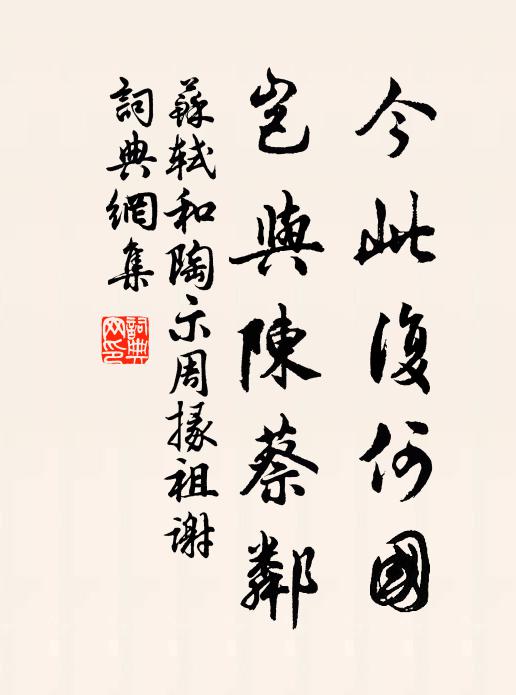 今此復何國
豈與陳蔡鄰
蘇軾和陶示周掾祖謝
詞典網集
詞典網印